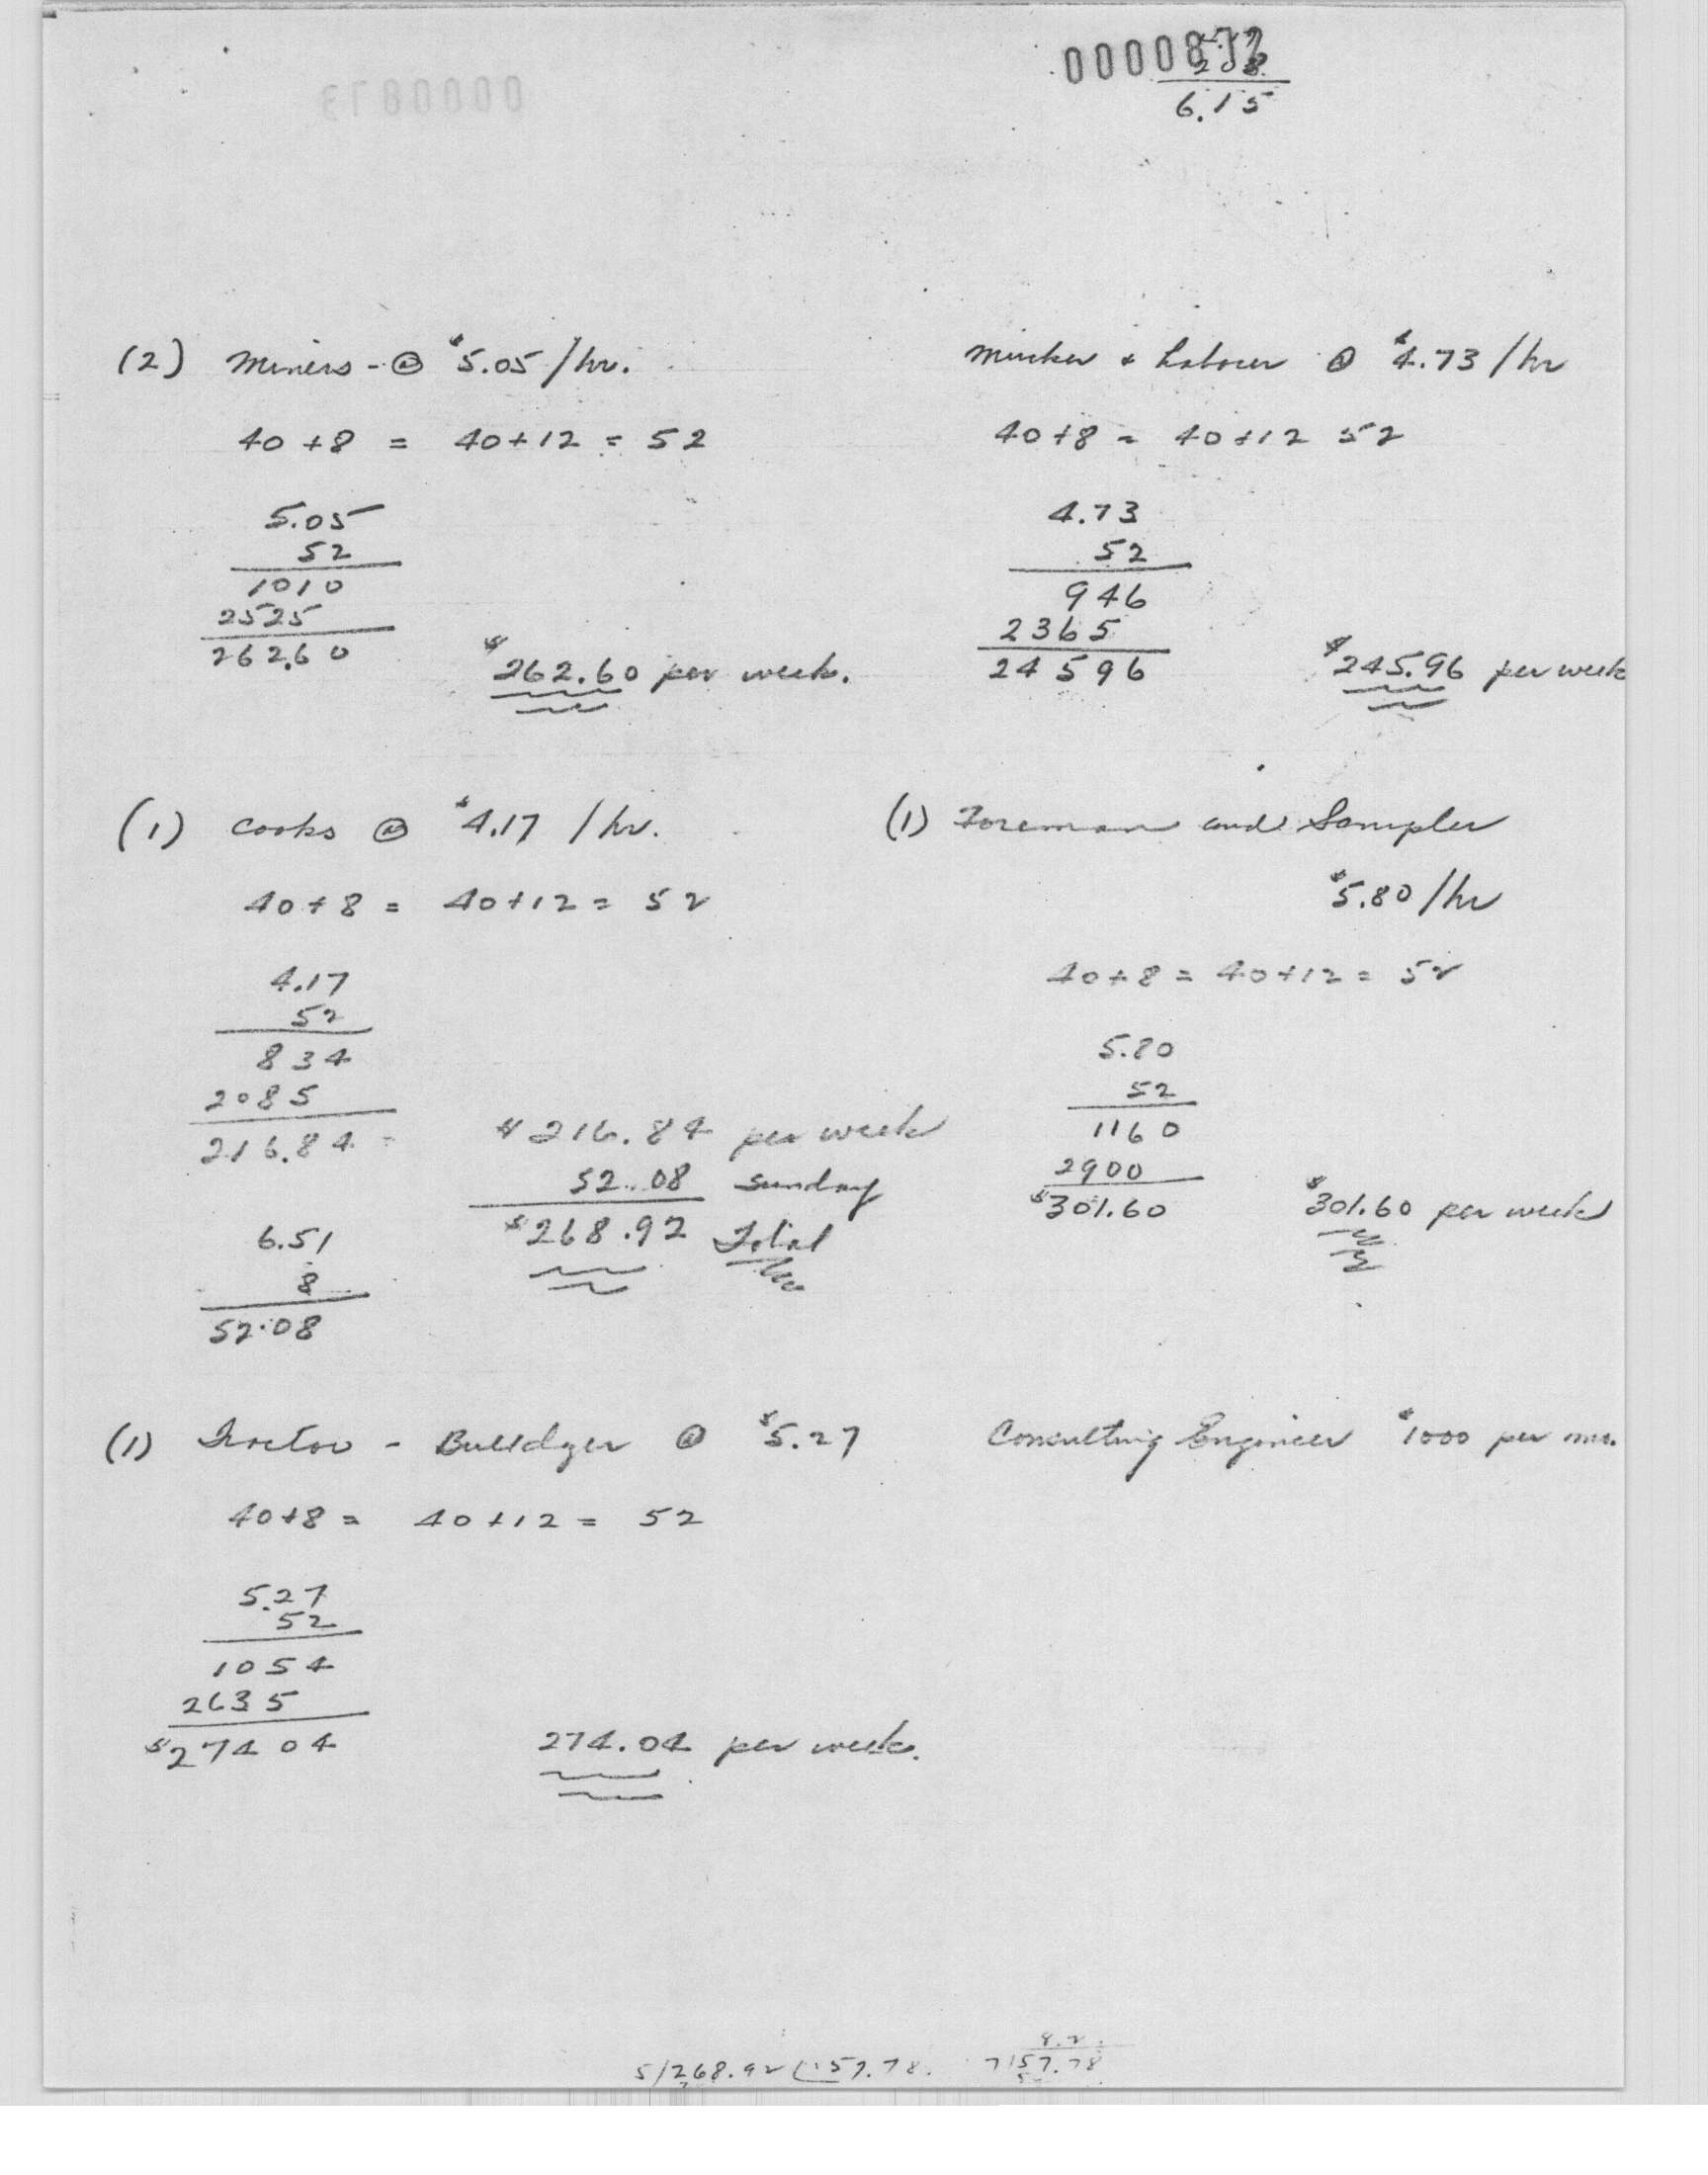 0000872
6.15
(2) Miners - @ $5.05/hr.
40 + 8 = 40 + 12 = 52
5.05
52
1010
2525
262.60
$262.60 per week.
Mucker & Labourer @ $4.73/hr
40+8 = 40+12 52
4.73
52
946
2365
24596
$245.96 per week
(1) Cooks @ $4.17 /hr.
40 + 8 = 40+12 = 52
4.17
52
834
2085
216.84 =
$216.84 per week
52.08 Sunday
$268.92 Total
6.51
8
52.08
(1) Foreman and Sampler
$5.80/hr
40+8 = 40+12 = 52
5.80
52
1160
2900
$301.60
$301.60 per week
(1) Tractor - Bulldzer @ $5.27
40+8 = 40+12 = 52
5.27
52
1054
2635
$27404
274.04 per week.
Consulting Engineer $1000 per mo.
5/268.92 (157.78.
8.2
7/57.78